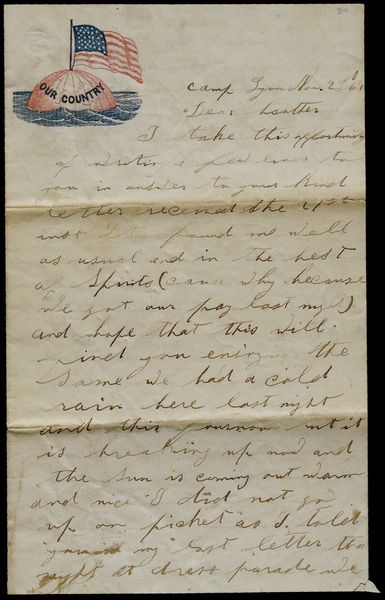 OUR COUNTRY
Camp Lyon Nov.
Dear
I take this opportunity
of writin a few lines to
you in answer to your kind
letter received the 21st
inst It found me well
as usual and in the best
of Spirits (cause why because
we got our pay last night)
and hope that this will
find you enjoying the
same we had a cold
rain here last night
and this but it
is breaking up now and
the sun is coming out warm
and nice I did not go
up on picket as I told
you in my last letter the
night at dress parade we